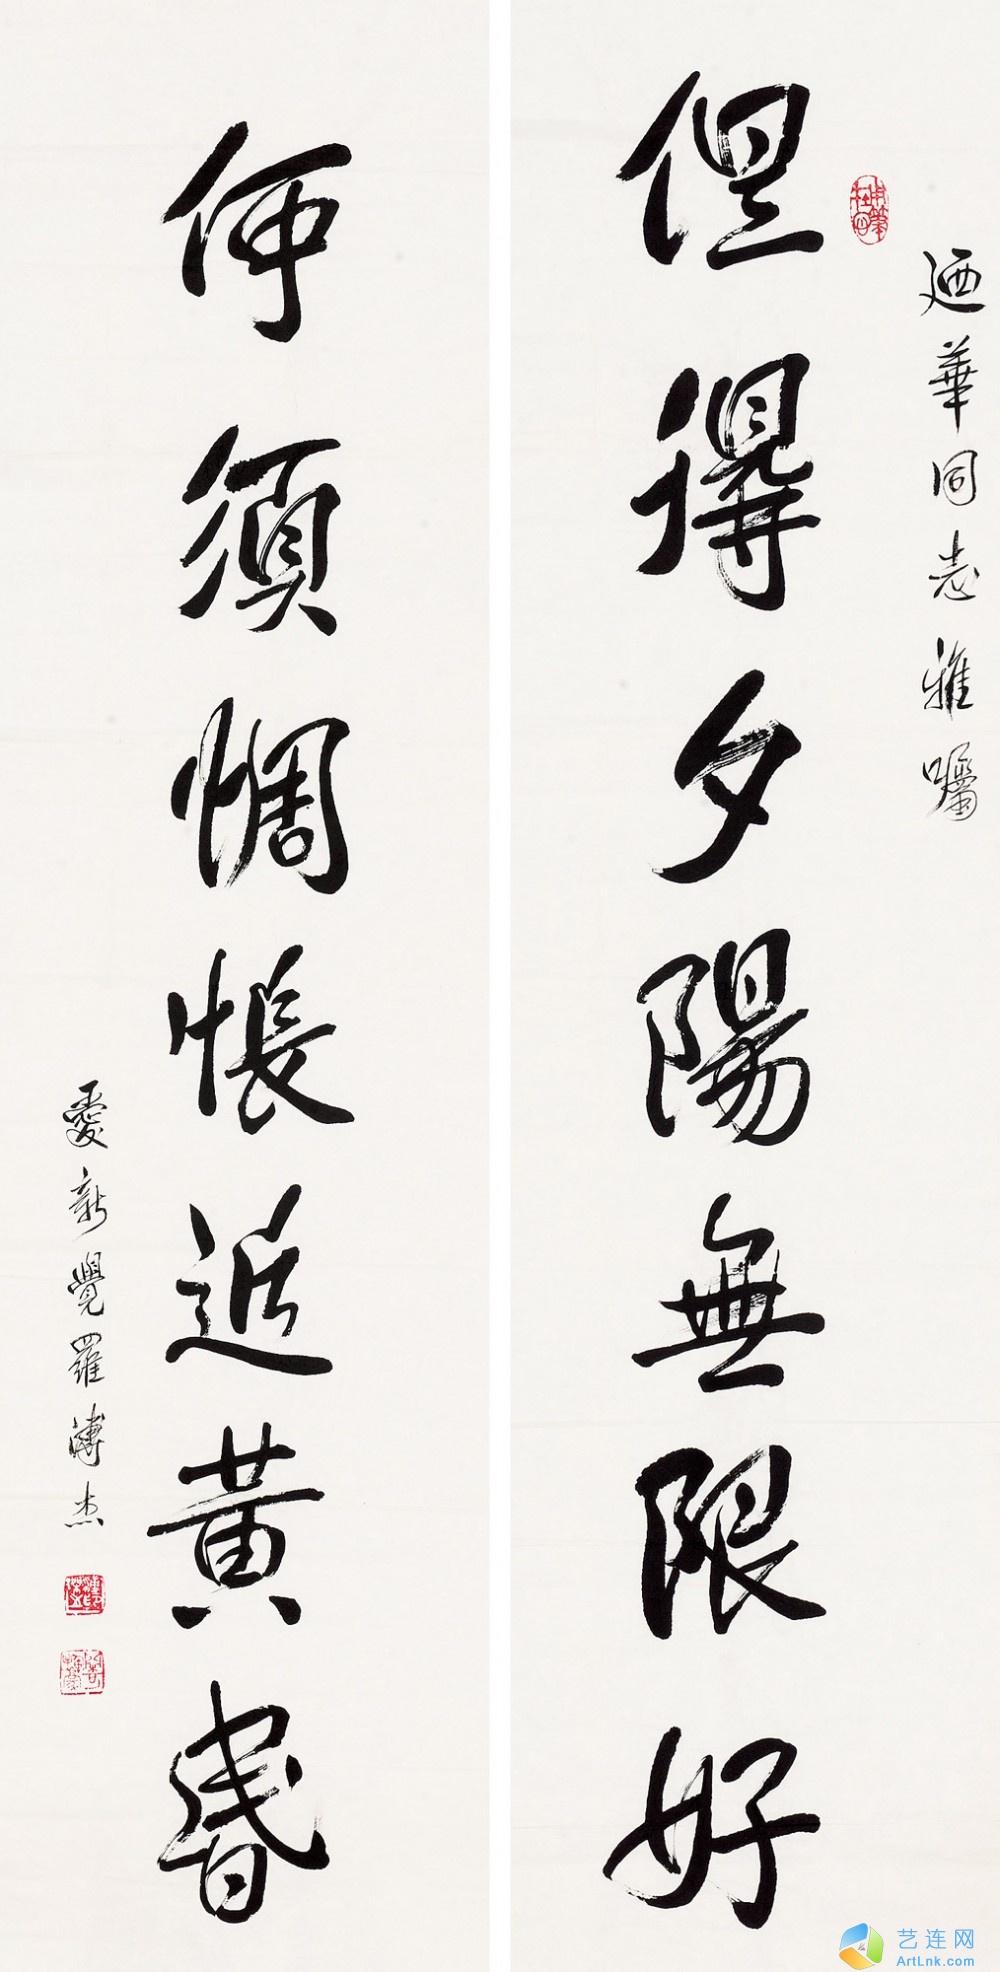 廼華同志雅囑
但得夕陽無限好
何須惆悵近黃昬
愛新覺羅溥杰
艺连网
ArtLnk.com